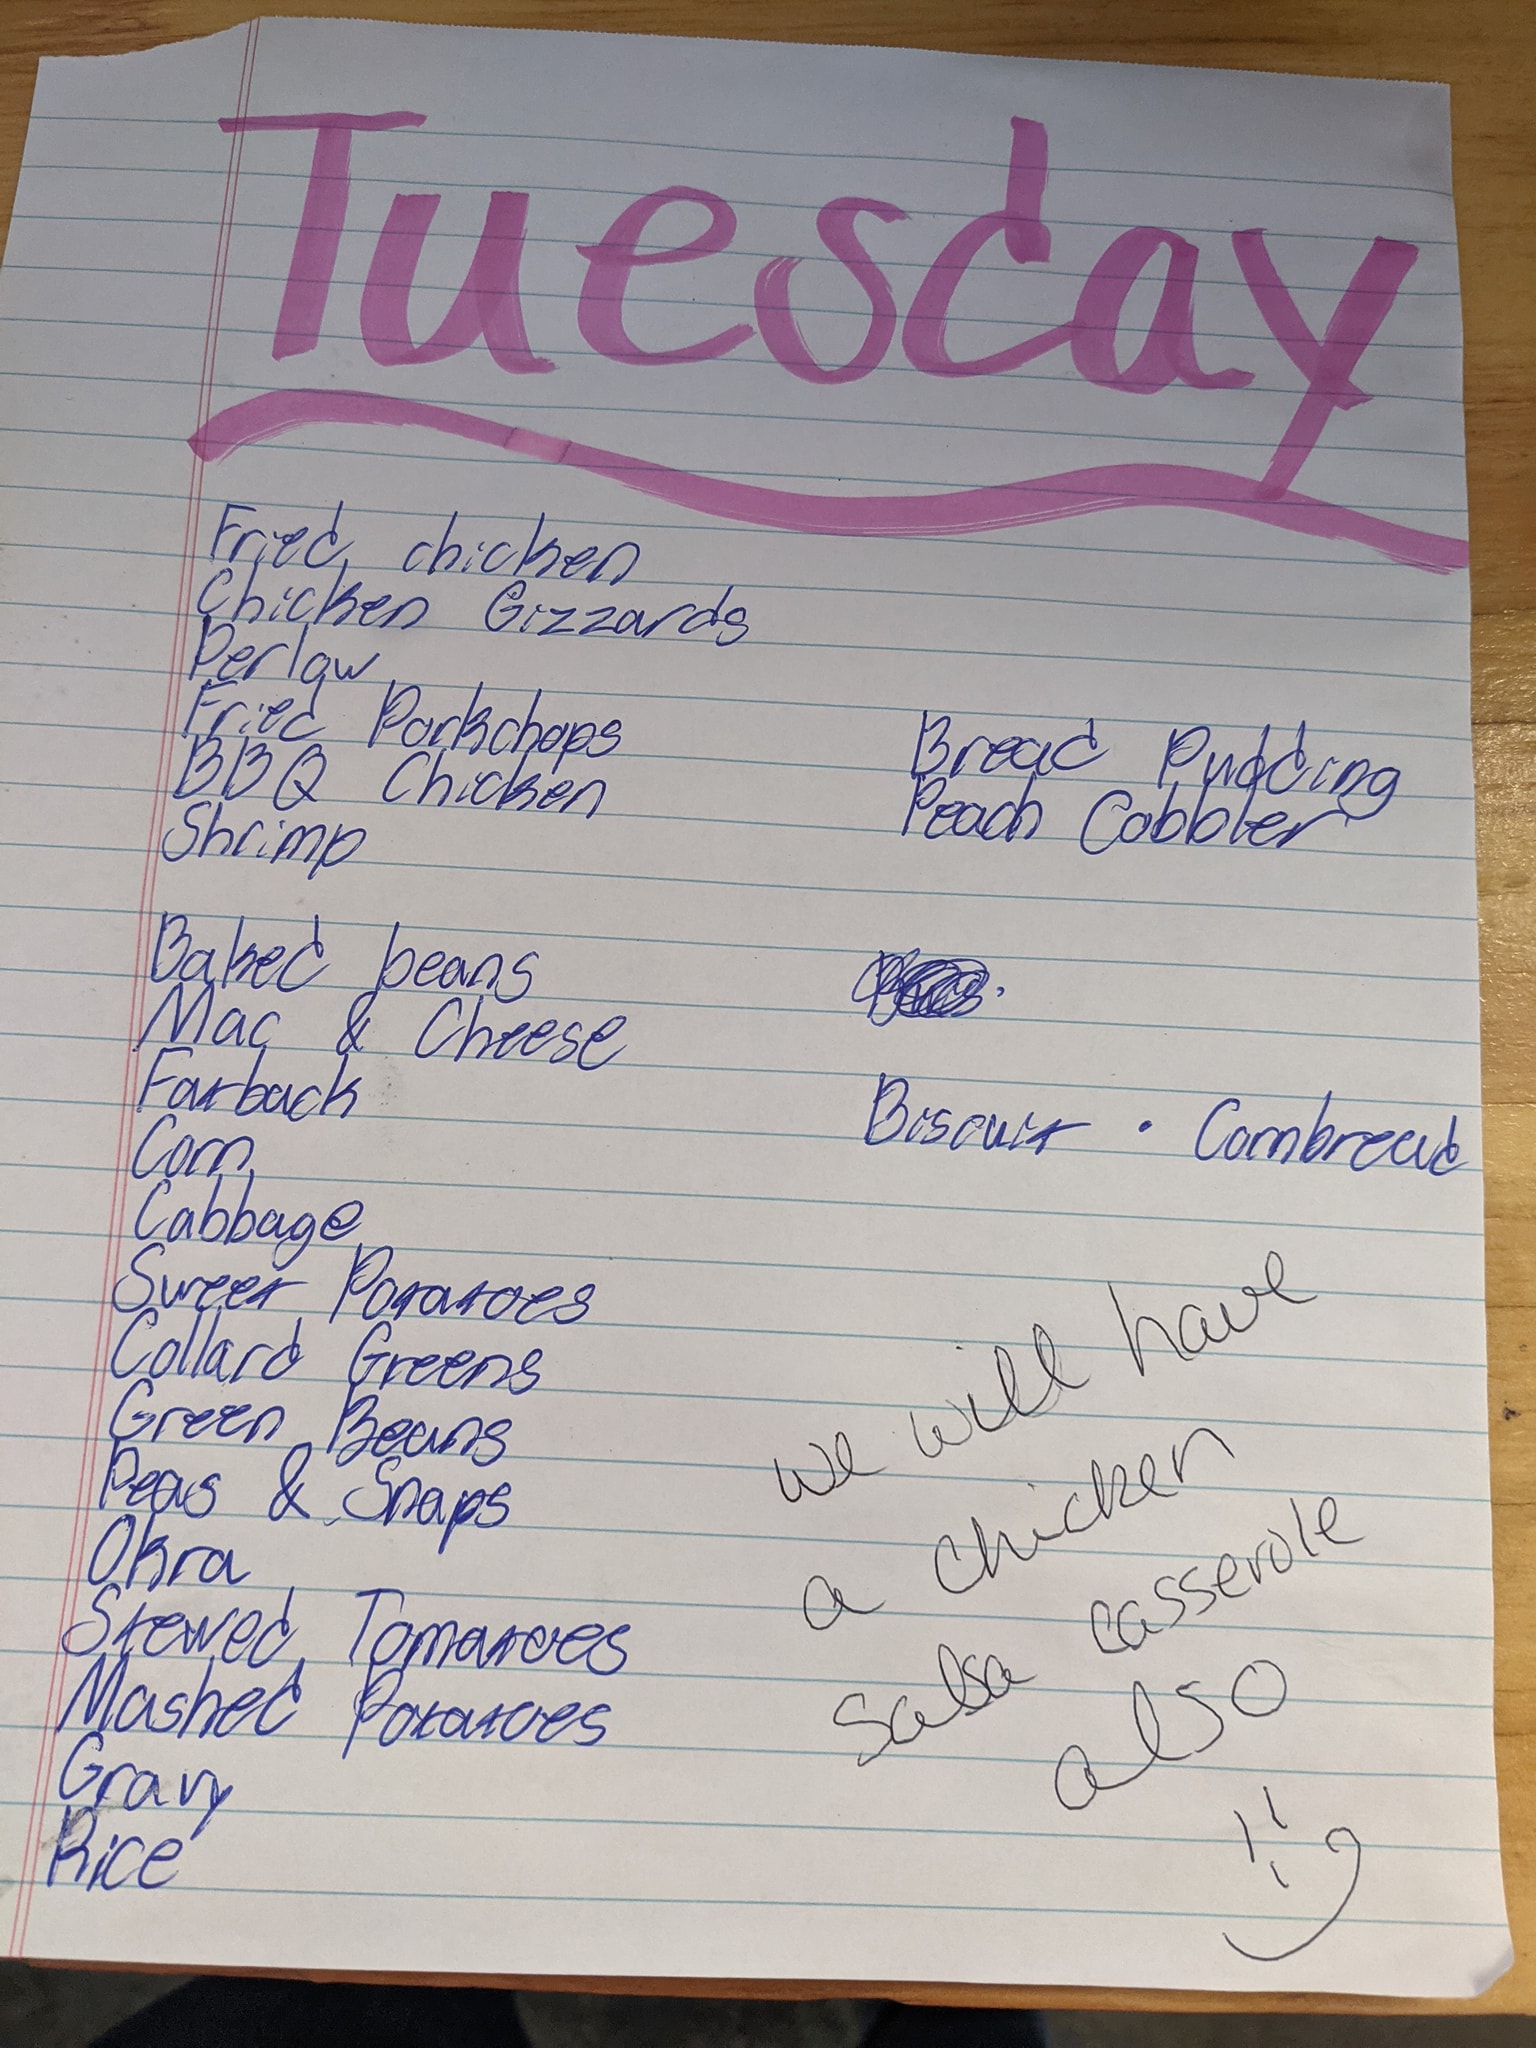 Tuesday
Fried chicken
Chicken Gizzards
Perlow
Fried Porkchops
BBQ Chicken
Shrimp
Bread Pudding
Peach Cobbler
Baked beans
Mac & Cheese
Fatback
Corn
Cabbage
Sweet Potatoes
Collard Greens
Green Beans
Peas & Snaps
Okra
Stewed Tomatoes
Mashed Potatoes
Gravy
Rice
Biscuit • Cornbread
we will have
a chicken
salsa casserole
also